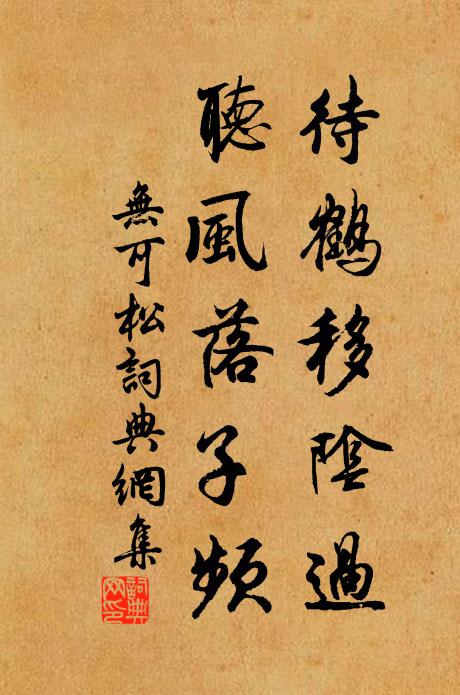 待鶴移陰過
聽風落子頻
無可松詞典網集
詞典
网印